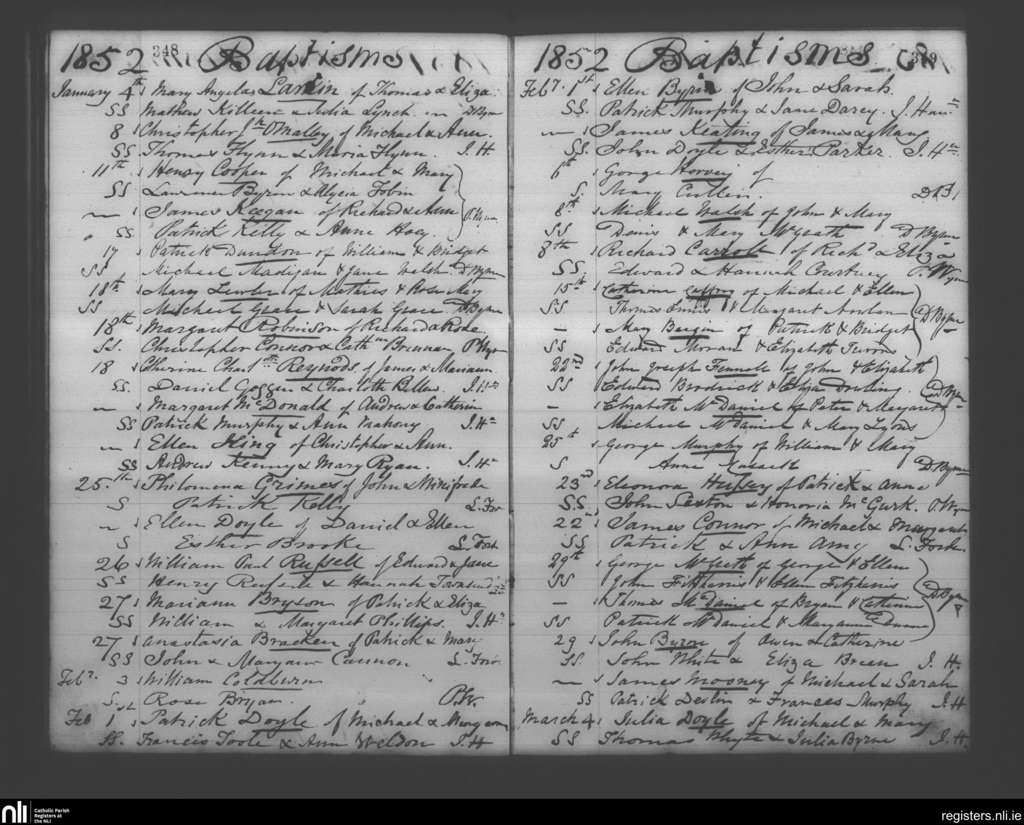 1852 348 Baptisms
January 4th s Mary Angelas Larkin of Thomas & Eliza
SS Mathew Killeen & Julia Lynch D Byrne
8 s Christopher Jn O'Malley of Michael & Anne
SS Thomas Flynn & Maria Flynn. J. H.
11th s Henry Cooper of Michael & Mary
SS Lawrence Byrne & Alycia Tobin
s James Keegan of Richard & Ann P. Wynn
SS Patrick Kelly & Anne Hoey
17 s Patrick Dundon of William & Bridget
SS Michael Madigan & Jane Walsh D Byrne
18th s Mary Lawlor of Mathias & Rose Mary
SS Michael Grace & Sarah Grace D Byrne
18th Margaret Robinson of Richard & Rose
SS. Christopher Connor & Cathne Brennan P Wyn
18 s Charlt Reynolds of James & Mariann
SS. Daniel Goggen & Charlotte Fuller. J. H
s Margaret McDonald of Andrew & Catherin
SS Patrick Murphy & Ann Mahony J. Hn
s Ellen King of Christopher & Ann.
SS Andrew Kenny & Mary Ryan. J. Hn
25th s Philomena Grimes of John & Winifrede
S Patrick Kelly L. For
s Ellen Doyle of Daniel & Ellen
S Esther Brooke L. Ford
26 s William Paul Russell of Edward & Jane
SS Henry & Hannah Townsend
27 s Mariann Bryson of Patrick & Eliza
SS William & Margaret Phillips. J. Hn
27 s Anastasia Bracken of Patrick & Mary
SS John & Maryann Cannon L. For
Feby. 3 s William Coldburn
S. Rose Bryan. P.W.
Feb 1st s Patrick Doyle of Michael & Mary
SS. Francis Toole & Ann Weldon J. H
1852 Baptisms
Feby. 1st s Ellen Byrne of John & Sarah.
SS. Patrick Murphy & Jane Darcy. J. Han
s James Keating of James & Mary
SS. John Doyle & Esther Parker. J. Han
6th s George Horvey of
S. Mary Cullen.
8th s Michael Walsh of John & Mary
SS Denis & Mary McGrath D Byrne
8th s Richard Carroll of Richd & Eliza
SS. Edward & Hannah Courtney P. Wynn
15th s Catherine Caffrey of Michael & Ellen
SS Thomas Ennis & Margaret Nowlan D Byrne
- s May Bergin of Patrick & Bridget
SS Edward Moran & Elizabeth
22nd s John Joseph Fennell of John & Elizabeth
SS Edward Brodrick & Eliza Dowling D Byrne
- s Elizabeth McDaniel of Peter & Margaret
SS Michael McDaniel & Mary Lyons
25th s George Murphy of William & Mary
S Anne D Byrne
23rd s Eleonora Hussey of Patrick & Anne
SS. John Sexton & Honoria McGurk. P. Wyn
22nd s James Connor of Michael & Margaret
SS Patrick & Ann Amy L. Forde
29th s George McGrath of George & Ellen
SS John Fitzharris & Ellen Fitzharris
- s Thomas McDaniel of Bryan & Catherine D. Byrne
SS Patrick McDaniel & Maryanne Dunne
29 s John Byron of Owen & Catherine
SS. John White & Eliza Breen J. H.
s James Mooney of Michael & Sarah
SS Patrick Devlin & Frances Murphy J. H
March 4 s Julia Doyle of Michael & Mary
SS Thomas Whyte & Julia Byrne J. H.
nli Catholic Parish Registers at the NLI
registers.nli.ie